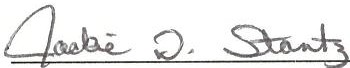 Jackie D. Stantz